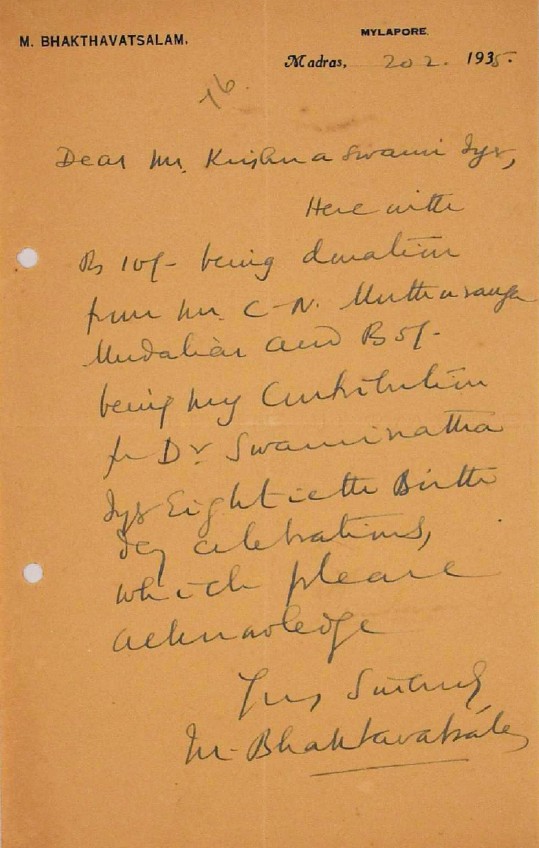 M. BHAKTHAVATSALAM.
MYLAPORE.
Madras, 20 2. 1935.
16.
Dear Mr. Krishnaswami Iyer,
Here with
Rs 10/- being donation
from Mr. C-N. Muthuranga
Mudaliar and Rs 5/-
being my Contribution
for Dr Swaminatha
Iyer Eightieth Birth
day celebrations,
which please
acknowledge
Yours Sincerely
M. Bhaktavatsalam